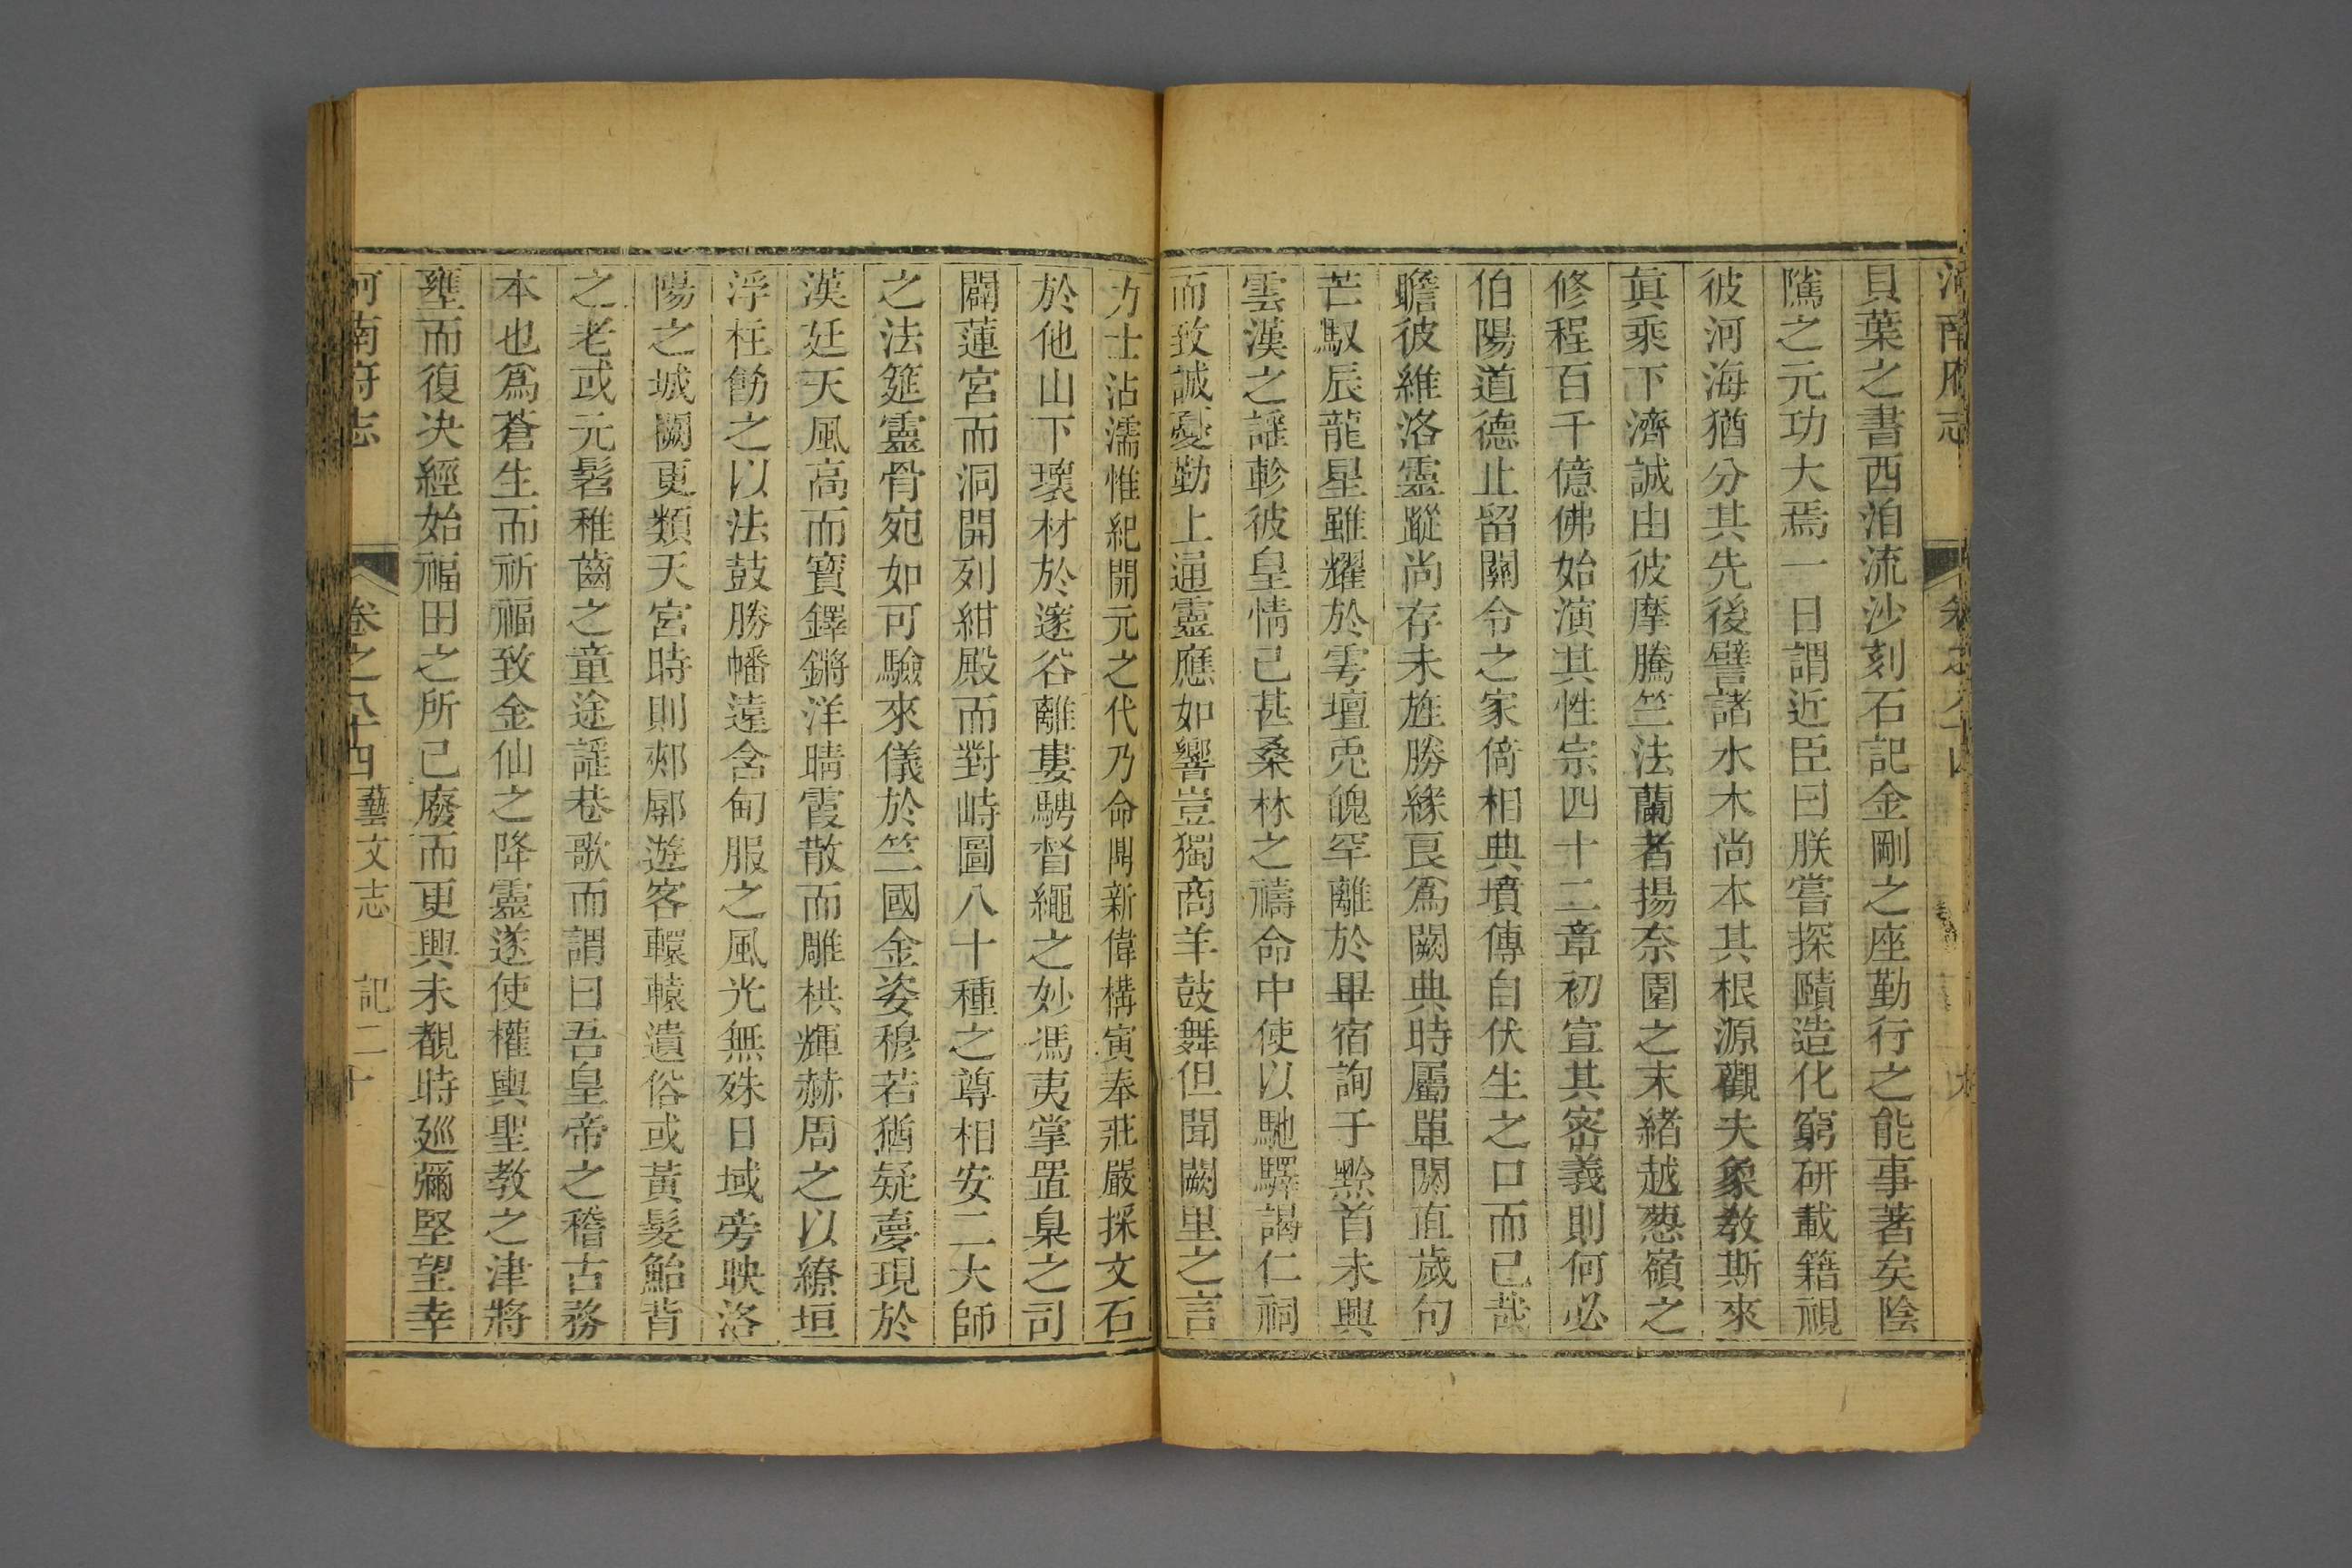 河南府志 卷之八十四
貝葉之書西洎流沙刻石記金剛之座勤行之能事著矣陰
隲之元功大焉一日謂近臣曰朕嘗探賾造化窮研載籍視
彼河海猶分其先後譬諸水木尚本其根源觀夫象教斯來
眞乘下濟誠由彼摩騰竺法蘭者揚奈園之末緒越葱嶺之
修程百千億佛始演其性宗四十二章初宣其密義則何必
伯陽道德止留關令之家倚相典墳傳自伏生之口而已哉
瞻彼維洛靈蹤尚存未旌勝緣良爲闕典時屬單閼直歲句
芒馭辰龍星雖耀於雩壇兎魄罕離於畢宿詢于黔首未興
雲漢之謠軫彼皇情已甚桑林之禱命中使以馳驛謁仁祠
而致誠憂勤上逼靈應如響豈獨商羊鼓舞但聞闕里之言
力士沾濡惟紀開元之代乃命鼎新偉構寅奉莊嚴採文石
於他山下瓌材於邃谷離婁騁督繩之妙馮夷掌置臬之司
闢蓮宮而洞開列紺殿而對峙圖八十種之尊相安二大師
之法筵靈骨宛如可驗來儀於竺國金姿穆若猶疑夢現於
漢廷天風高而寶鐸鏘洋晴霞散而雕栱輝赫周之以繚垣
浮柱飾之以法鼓勝幡遠含甸服之風光無殊日域旁映洛
陽之城闕更類天宮時則郟鄏遊客轘轅遺俗或黃髮鮐背
之老或元髫稚齒之童途謠巷歌而謂曰吾皇帝之稽古務
本也爲蒼生而祈福致金仙之降靈遂使權輿聖教之津將
壅而復決經始福田之所已廢而更興未覩時廵彌堅望幸
河南府志 卷之八十四 藝文志 記二 十